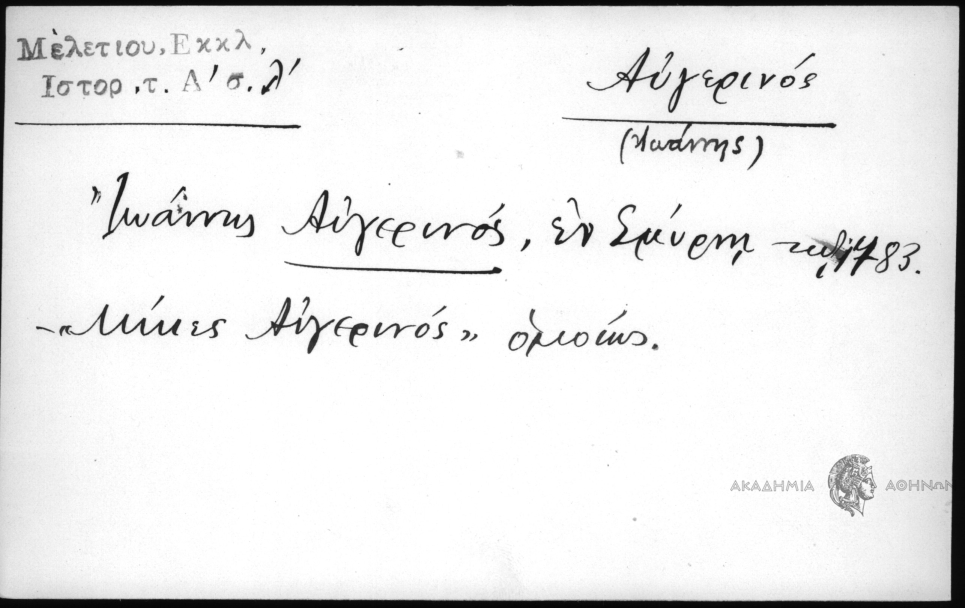 Μὲλετιου, Εκκλ,
Ιστορ, τ. Α' σ. λ'
Αὐγερινός
(Ἰωάννης)
"Ἰωάννης Αὐγερινός, ἐν Σμύρνῃ 1783.
-«Μίκες Αὐγερινός» ὁμοίως.
ΑΚΑΔΗΜΙΑ ΑΘΗΝΩΝ